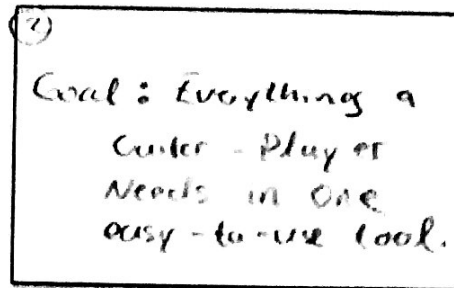 2
Goal: Everything a
Guitar-Player
Needs in One
easy-to-use tool.